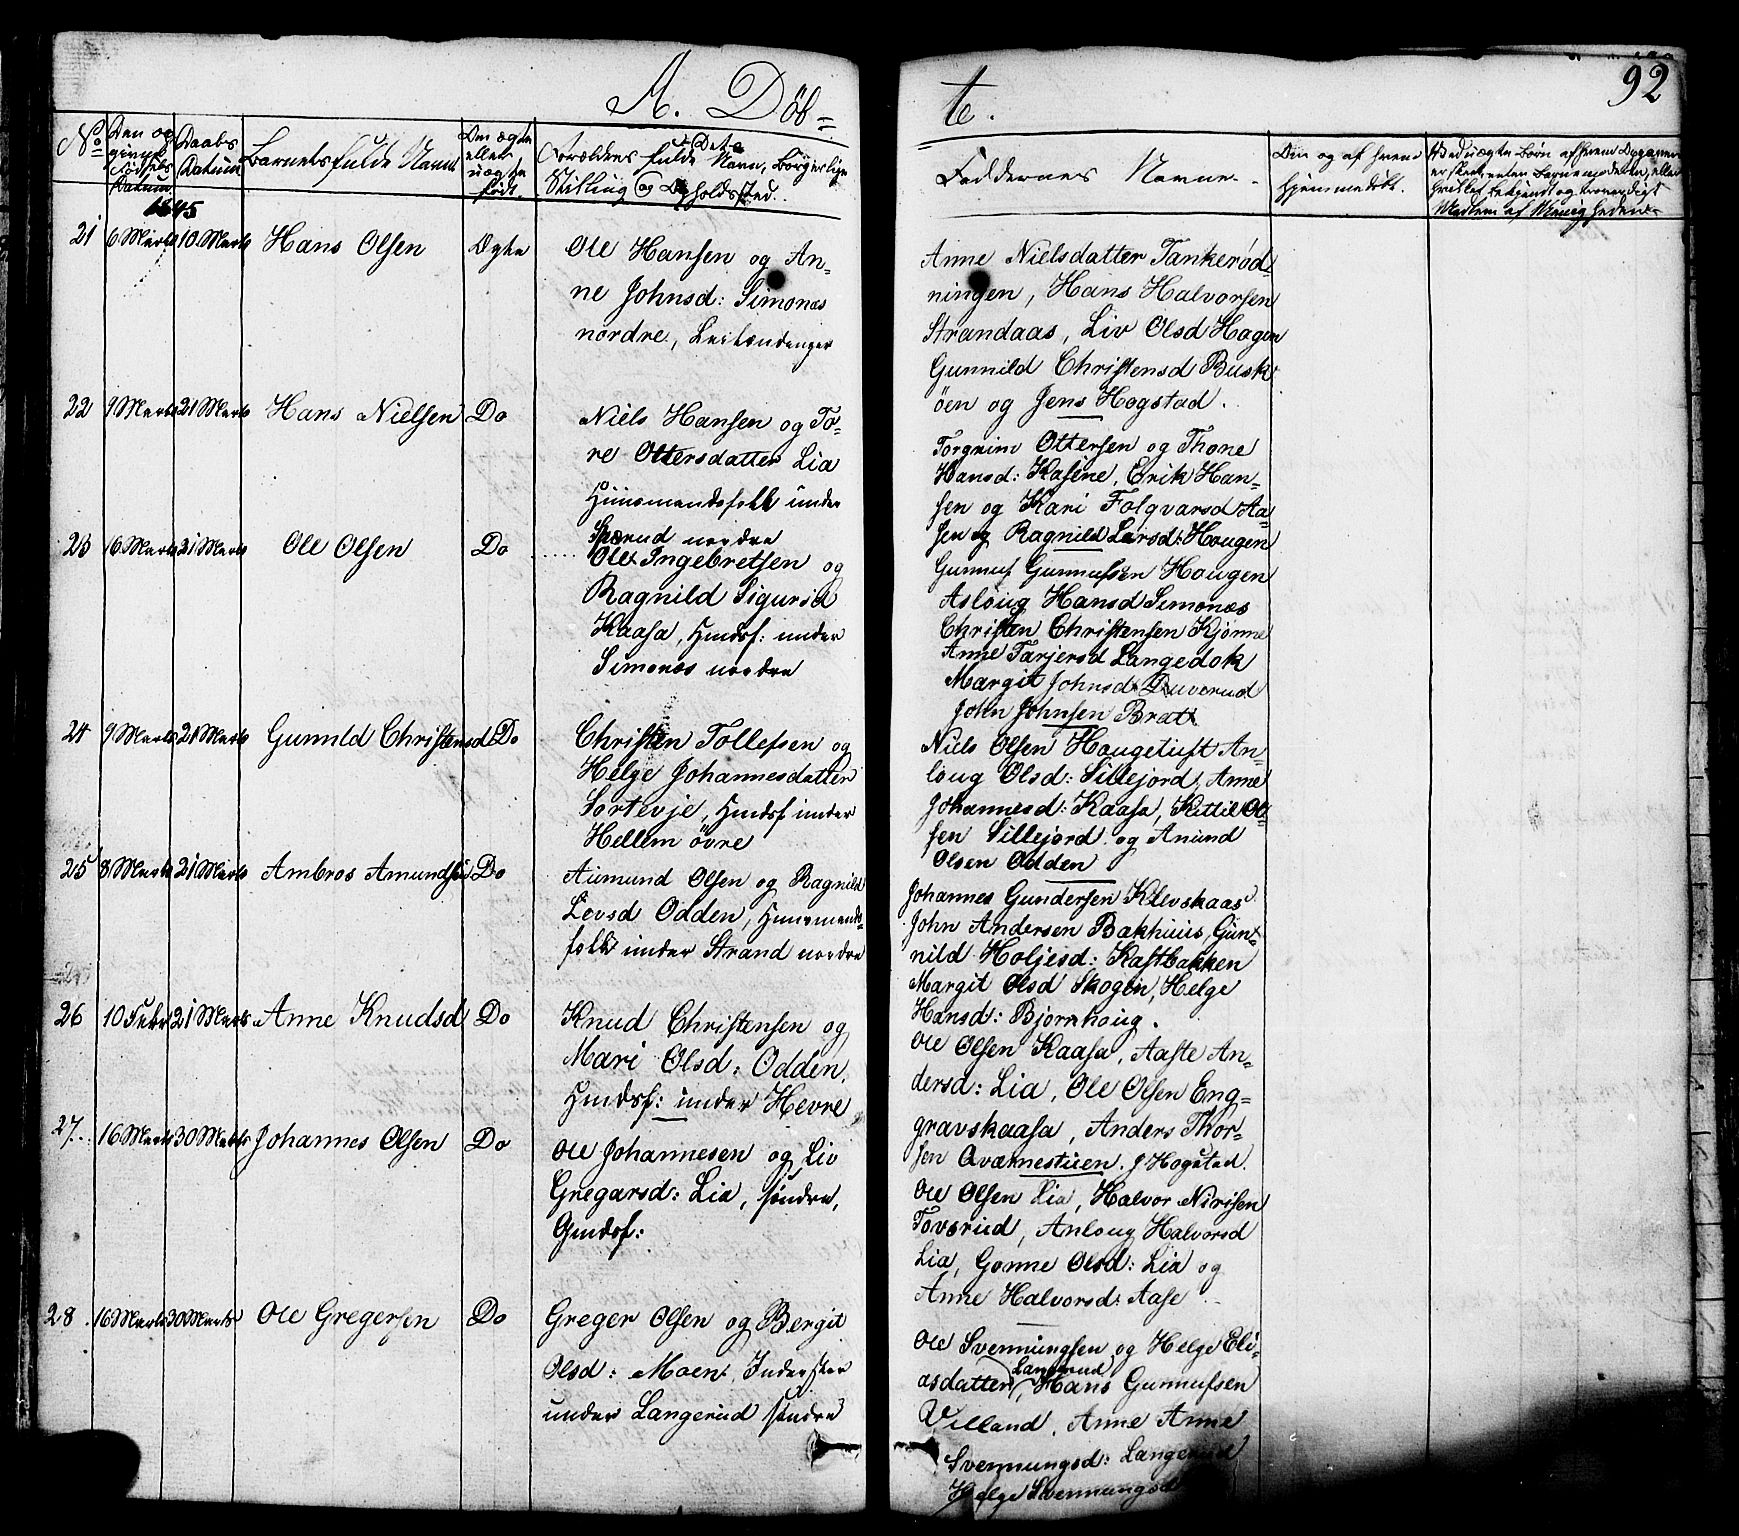 A. Døb=
te.
92
No
Den og
givne
Fødsels
Datum.
Daabs
Datum
Barnets fulde Navn
Om ægte
eller
uægte
født.
Forældres fulde Navn, Borgerlige
Stilling og Opholdssted.
Faddernes Navne.
Om og af hvem
hjemmedøbt.
1845
21 6 Marts 10 Marts Hans Olsen Ægte
Ole Hansen og An=
ne Johnsd: Simonæs
nordre, Leilændinger
Anne Nielsdatter Tankerød
ningen, Hans Halvorsen
Strandaas, Liv Olsd Hagen
Gunnild Christensd Busk
øen og Jens Hogstad.
22 9 Marts 21 Marts Hans Nielsen Do
Niels Hansen og To=
re Ottersdatter Lia
Huusmandsfolk under
Sperud nordre
Torgrim Ottersen og Thone
Hansd: Kasene, Erik Han=
sen og Kari Folqvarsd Aa=
sen og Ragnild Larsd: Hougen
23 16 Marts 21 Marts Ole Olsen Do
Ole Ingebretsen og
Ragnild Sigursd
Kaasa, Hmdsf: under
Simonæs nordre
Gunnuf Gunnufsen Hougen
Asloug Hansd Simonæs
Christen Christensen Kjønne
Anne Tarjersd Langedok
Margit Johnsd Duverud
John Johnsen Bratt
24 9 Marts 21 Marts Gunnild Christensd Do
Christen Tollefsen og
Helge Johannesdatter
Sortevje, Hmdsf under
Hellem övre
Niels Olsen Hougetuft An=
loug Olsd: Sillejord, Anne
Johannesd: Kaasa, Kittil Ol=
sen Sillejord og Anund
Olsen Odden
25 8 Marts 21 Marts Ambros Amundsen Do
Aumund Olsen og Ragnild
Lovsd Odden, Huusmands=
folk under Strand nordre
Johannes Gundersen Klevskaas
John Andersen Bakhuus, Gun=
nild Holjesd: Kastbakken
Margit Olsd Skogen, Helge
Hansd: Bjørnhoug.
26 10 Febr 21 Marts Anne Knudsd Do
Knud Christensen og
Mari Olsd: Odden.
Hmdsf: under Hevre
Ole Olsen Kaasa, Aaste An=
dersd: Lia, Ole Olsen Eng=
gravskaasa, Anders Thor=
sen Qværnestuen. J Hogstad.
27. 16 Marts 30 Marts Johannes Olsen Do
Ole Johannesen og Liv
Gregarsd: Lia, søndre,
Gmdsf:
Ole Olsen Lia, Halvor Nirisen
Tovsrud, Anloug Halvorsd
Lia, Gonne Olsd: Lia og
Anne Halvorsd: Aase
28. 16 Marts 30 Marts Ole Gregersen Do
Greger Olsen og Bergit
Olsd: Moen, Inderster
under Langerud søndre
Ole Svennungsen og Helge Eli=
asdatter Langerud, Hans Gunnufsen
Villand, Anne Anne
Svennungsd: Langerud
Helge Svennungsd